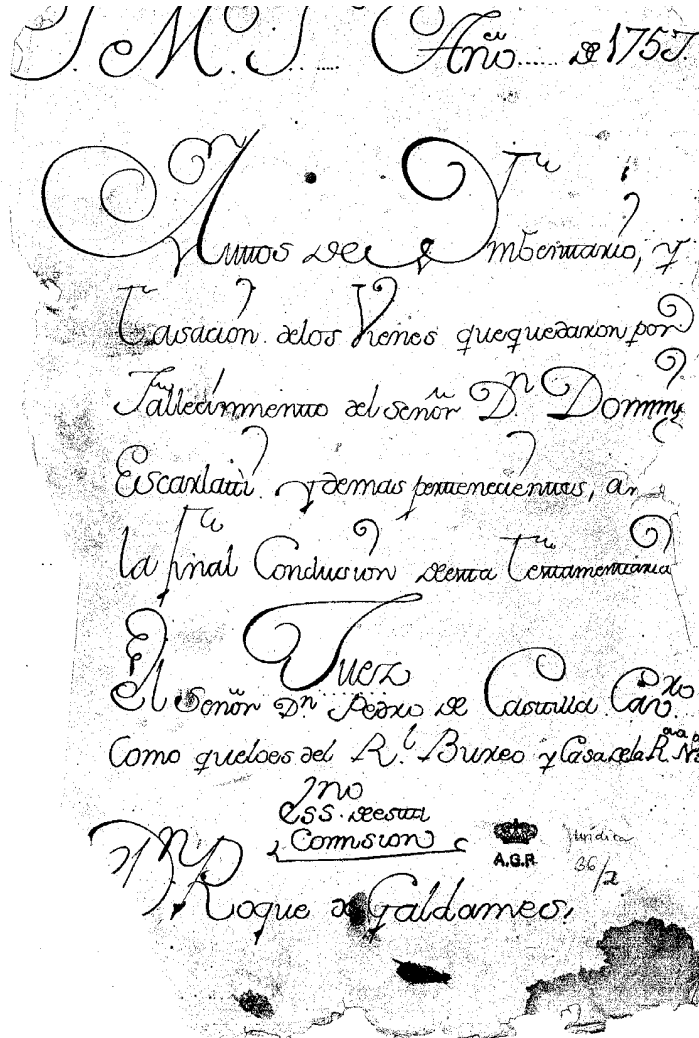 J. M. J. Año de 1757.
Autos de Ymbentario, y
tasacion delos Vienes quequedaron por
fallecimmento del señor Dn Doming
Escarlatti y demas perteneciemtes, a
la final Conclusion deesta testamentaria
Juez
El señor Dn Pedro de Castilla Cavro
Como queloes del Rl Bureo y Casa dela Ra Na
Ess. deesta
Comision
Dn Roque de Galdames,
A.G.P.
Jurídica
36/2